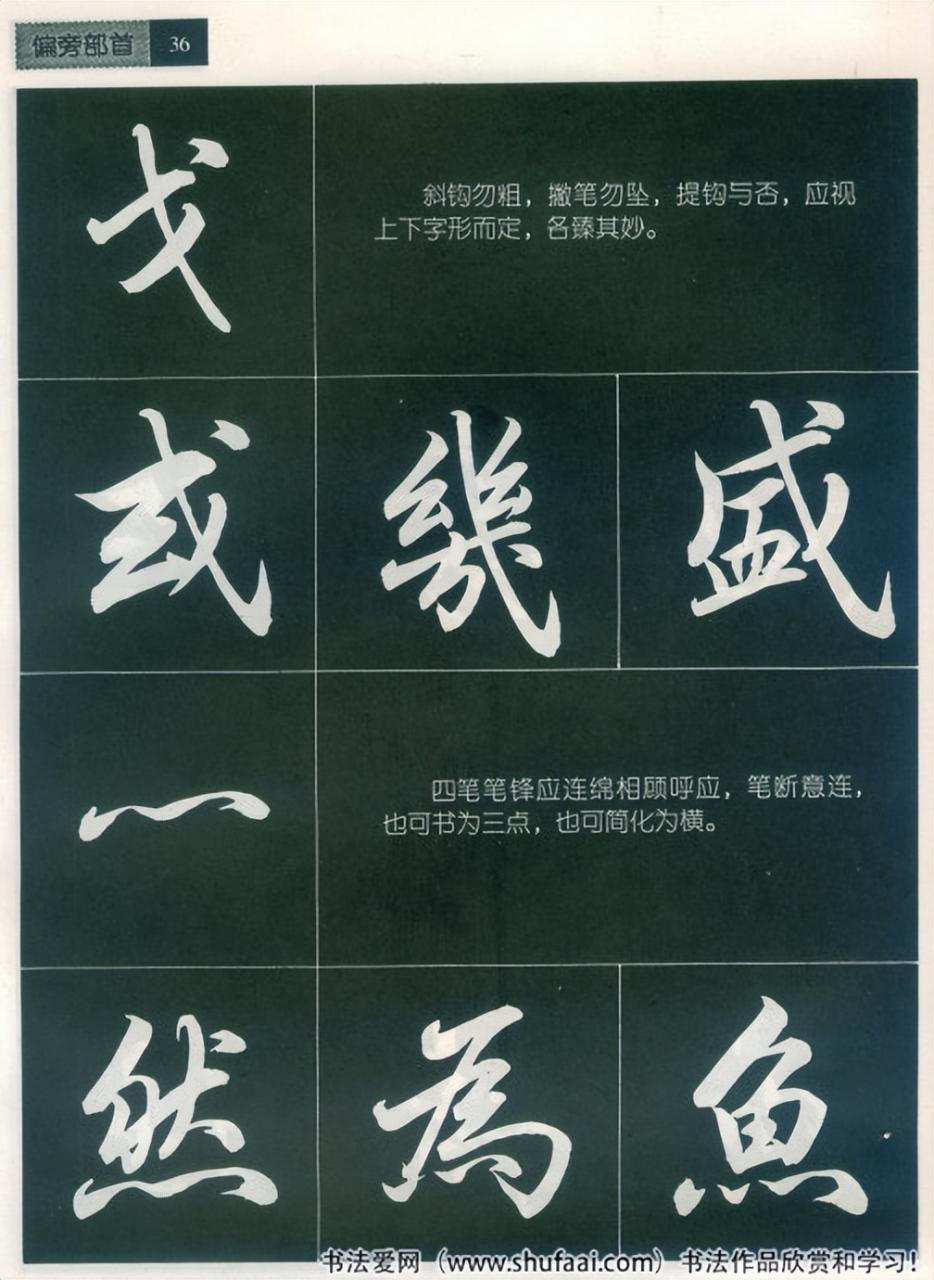 偏旁部首 36
戈
斜钩勿粗，撇笔勿坠，提钩与否，应视
上下字形而定，各臻其妙。
或 幾 盛
灬
四笔笔锋应连绵相顾呼应，笔断意连，
也可书为三点，也可简化为横。
然 為 魚
书法爱网（www.shufaai.com）书法作品欣赏和学习！